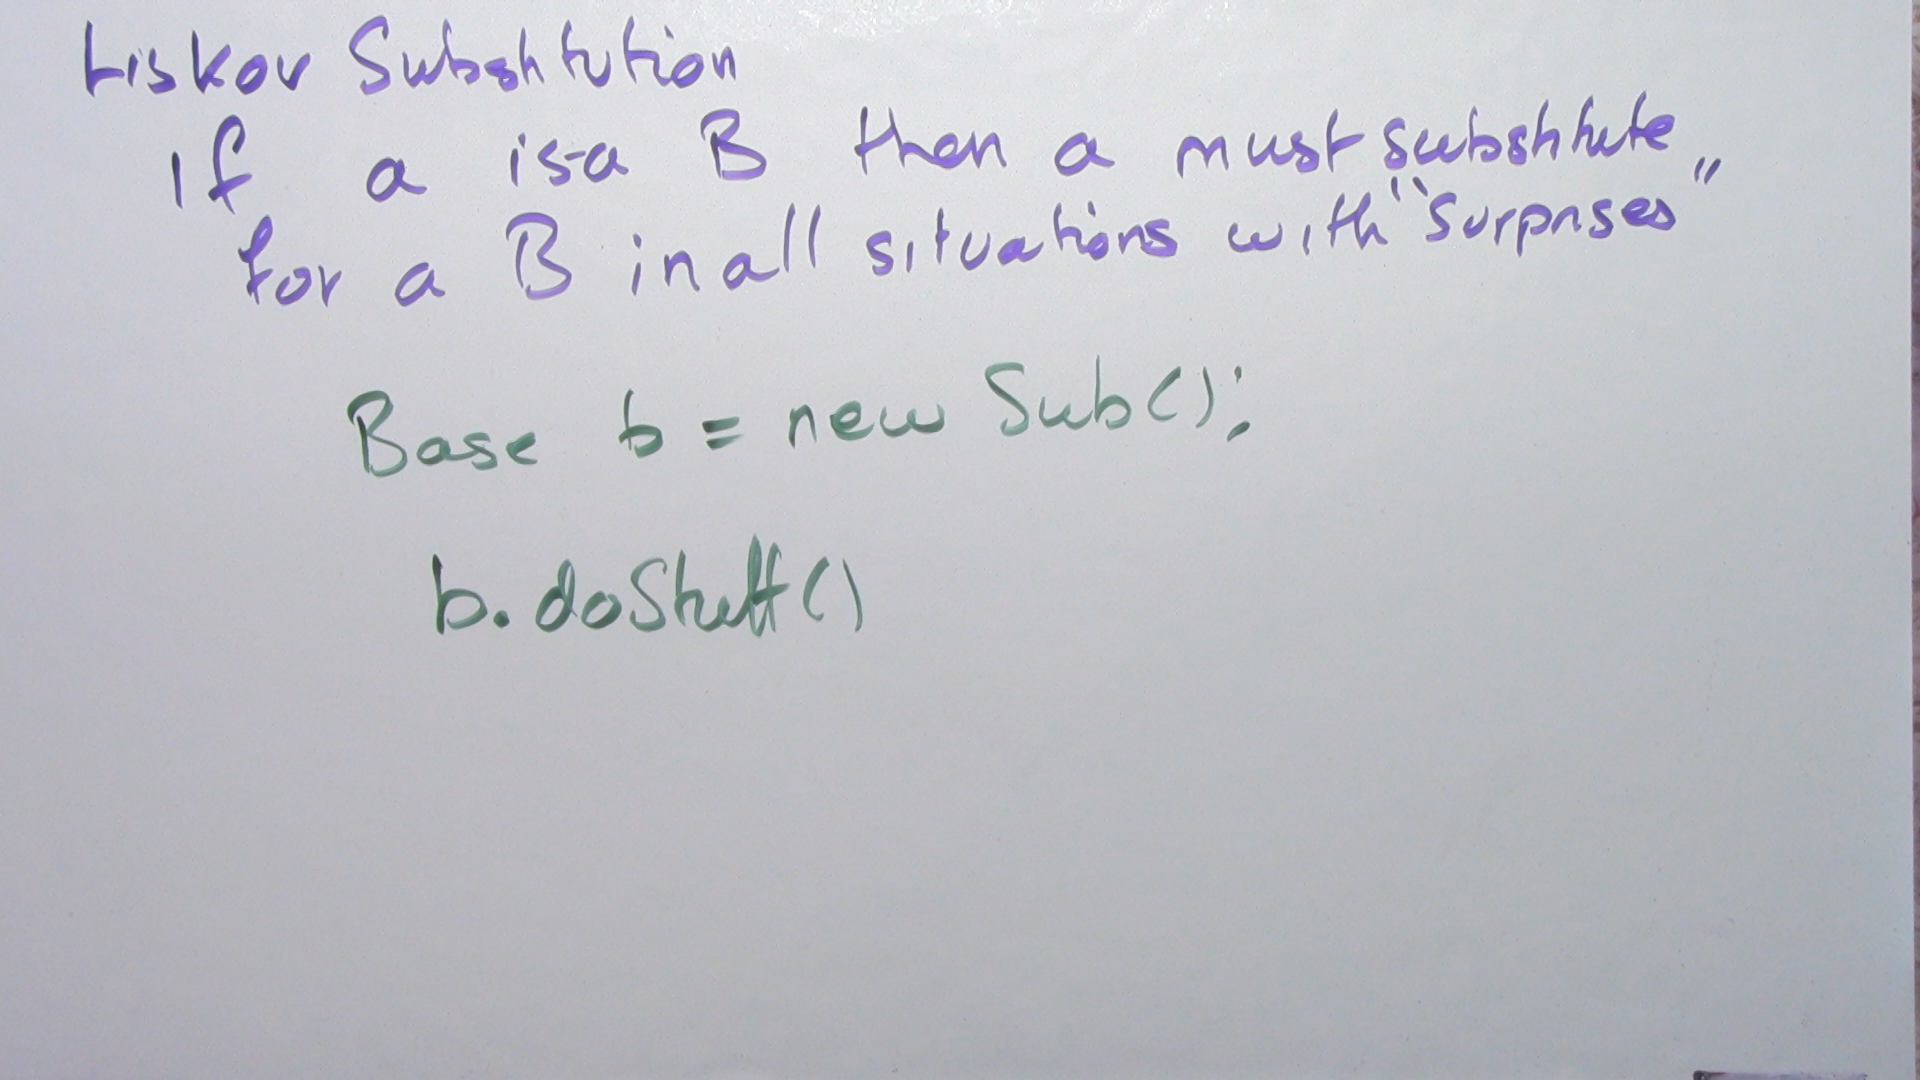 Liskov Substitution
If a is-a B then a must substitute
for a B in all situations with "surprises"
Base b = new Sub();
b.doStuff()